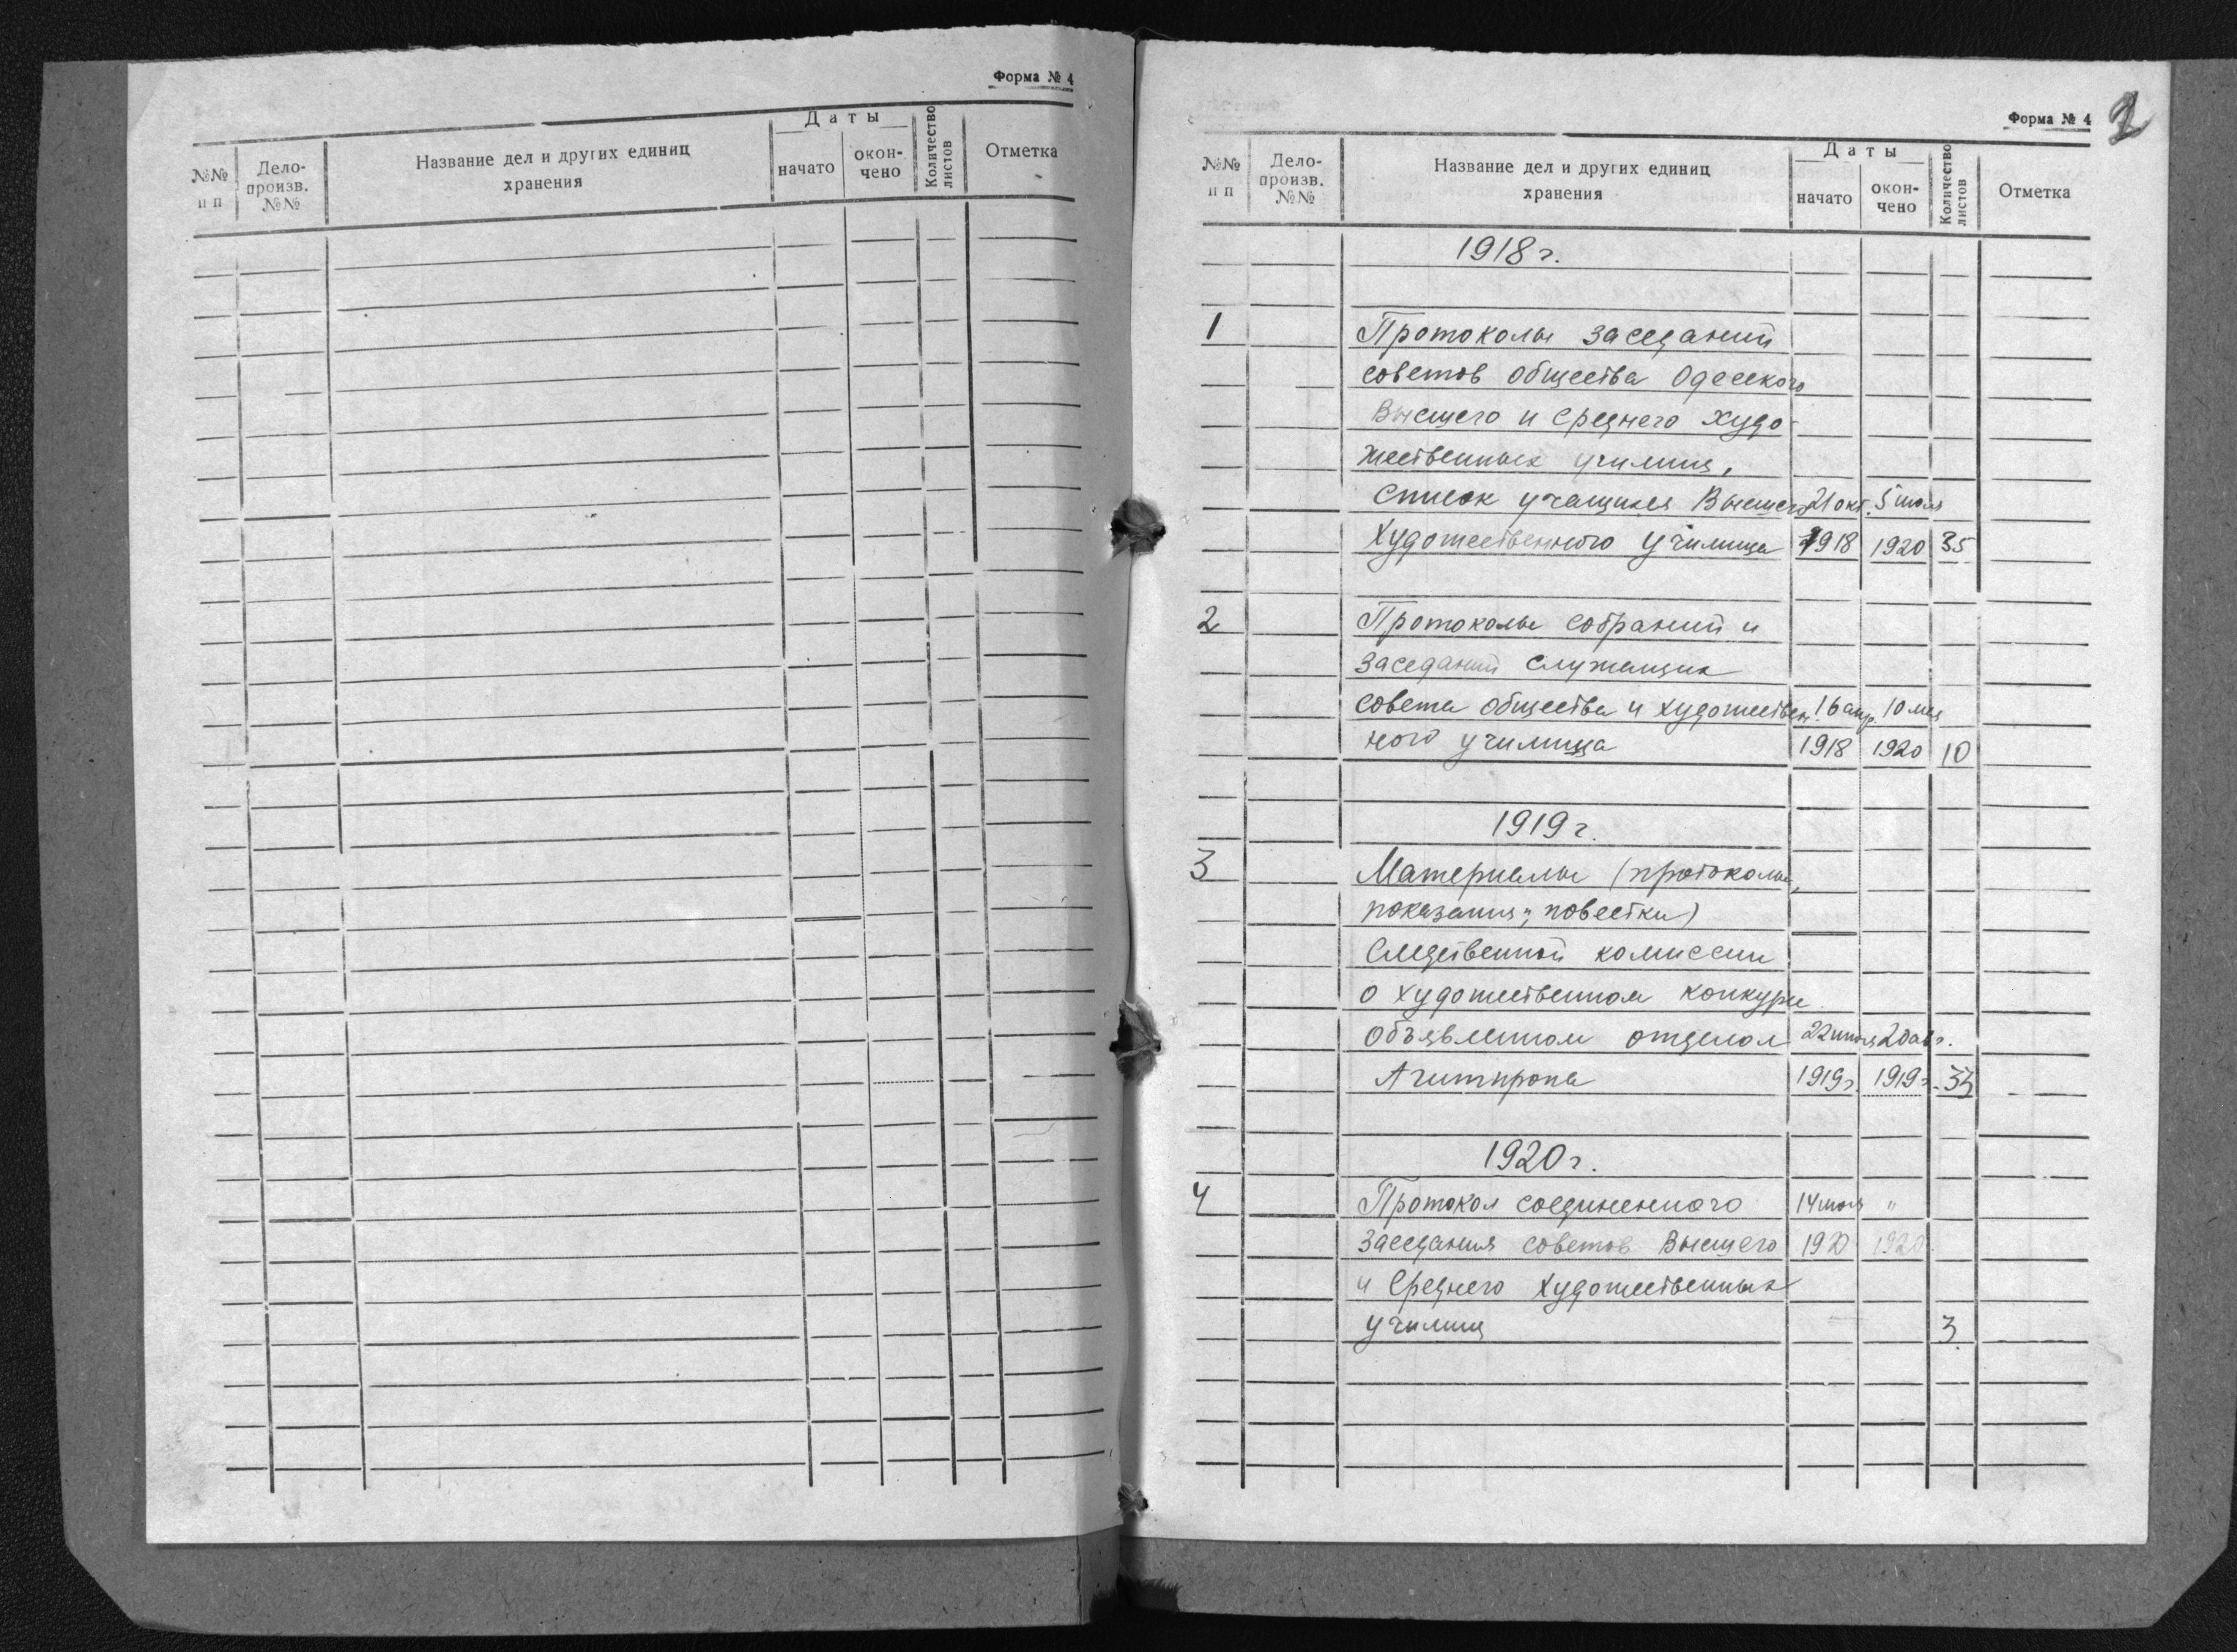 Форма № 4
№№ п п
Дело-произв. №№
Название дел и других единиц хранения
Даты
начато
окончено
Количество листов
Отметка
Форма № 4
2
№№ п п
Дело-произв. №№
Название дел и других единиц хранения
Даты
начато
окончено
Количество листов
Отметка
1918 г.
1 Протоколы заседаний
советов общества Одесского
Высшего и Среднего худо-
жественных училищ,
список учащихся Высшего 21 окт. 5 июля
художественного училища 1918 1920 35
2 Протоколы собраний и
заседаний служащих
совета общества и художествен- 16 апр. 10 мая
ного училища 1918 1920 10
1919 г.
3 Материалы (протоколы,
показания, повестки)
Следственной комиссии
о художественном конкурсе
объявленном отделом 22 июля 20 авг.
Агитпропа 1919 г. 1919 г. 33
1920 г.
4 Протокол соединенного 14 июля "
заседания советов Высшего 1920 1920
и Среднего художественных
училищ 3